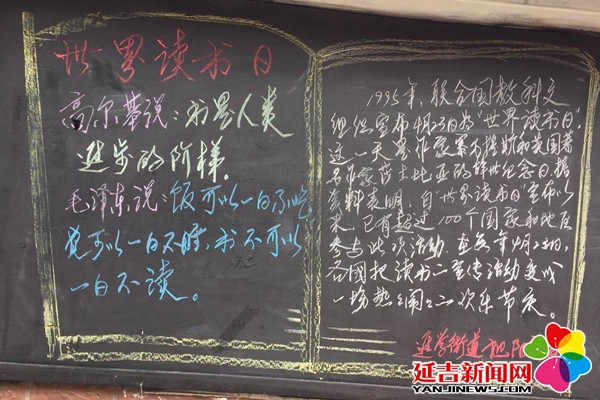 世界读书日
高尔基说：书是人类
进步的阶梯。
毛泽东说：饭可以一日不吃，
觉可以一日不睡，书不可以
一日不读。
1995年，联合国教科文
组织宣布4月23日为"世界读书日"
这一天是作家塞万提斯和英国著
名作家莎士比亚的辞世纪念日。据
资料表明，自"世界读书日"宣布以
来，已有超过100个国家和地区
参与此项活动。在每年4月23日，
各国把读书一宣传活动变成
一场热々闹々的欢乐节庆。
进学街道旭阳
延吉新闻网
YANJINEWS.COM